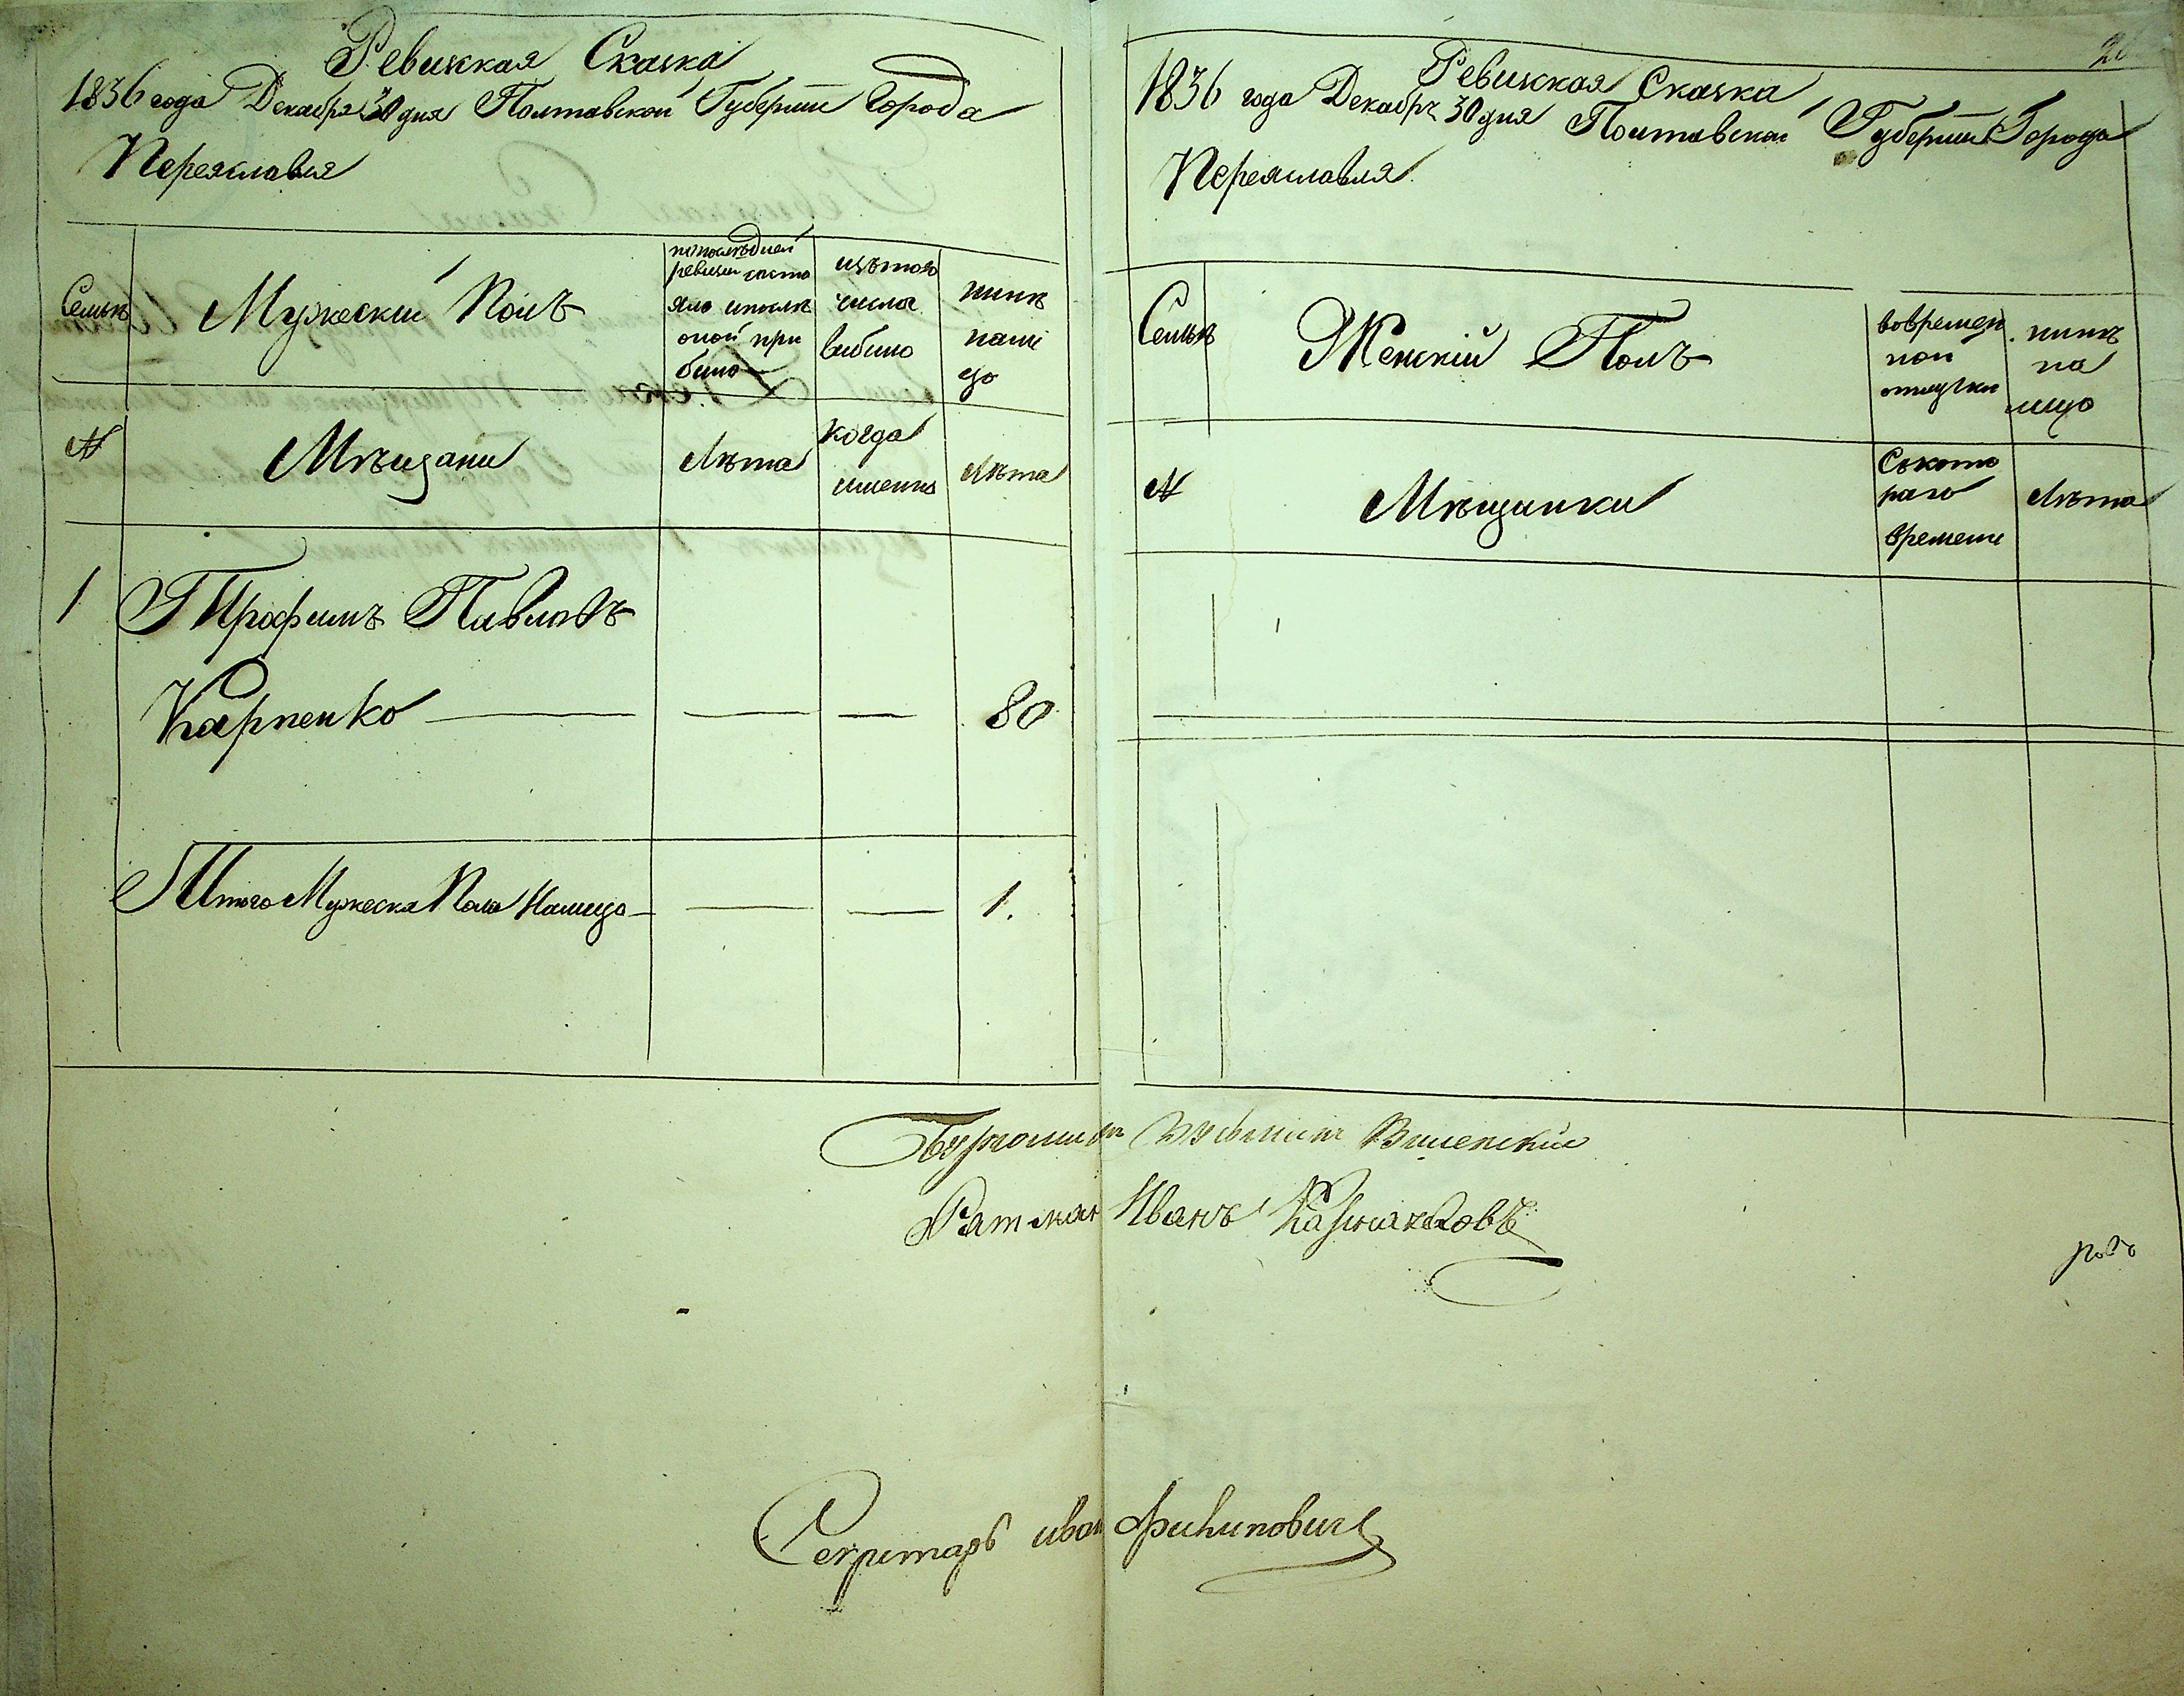 Ревизкая Сказка
1836 года Декабря 30 дня Полтавской Губернии Города
Переяславля
Семьи
Мужеский Полъ
попослѣдней
ревизии состо
яло ипослѣ
оной при
было
изътого
числа
выбыло
нинѣ
нали
цо
№
Мѣщани
Лѣта
когда
именно
Лѣта
1
Трофимъ Павловъ
Карпенко
80
Итого Мужеска Пола Налицо
1.
Ревизкая Сказка
1836 года Декабря 30 дня Полтавской Губернии Города
Переяславля
Семьи
Женскій Полъ
вовремен
ной
отлучки
нинѣ
на
лицо
№
Мѣщанки
Скакого
времени
Лѣта
Бургомистръ
Ратман Иванъ
Секретарь Иван Филипович